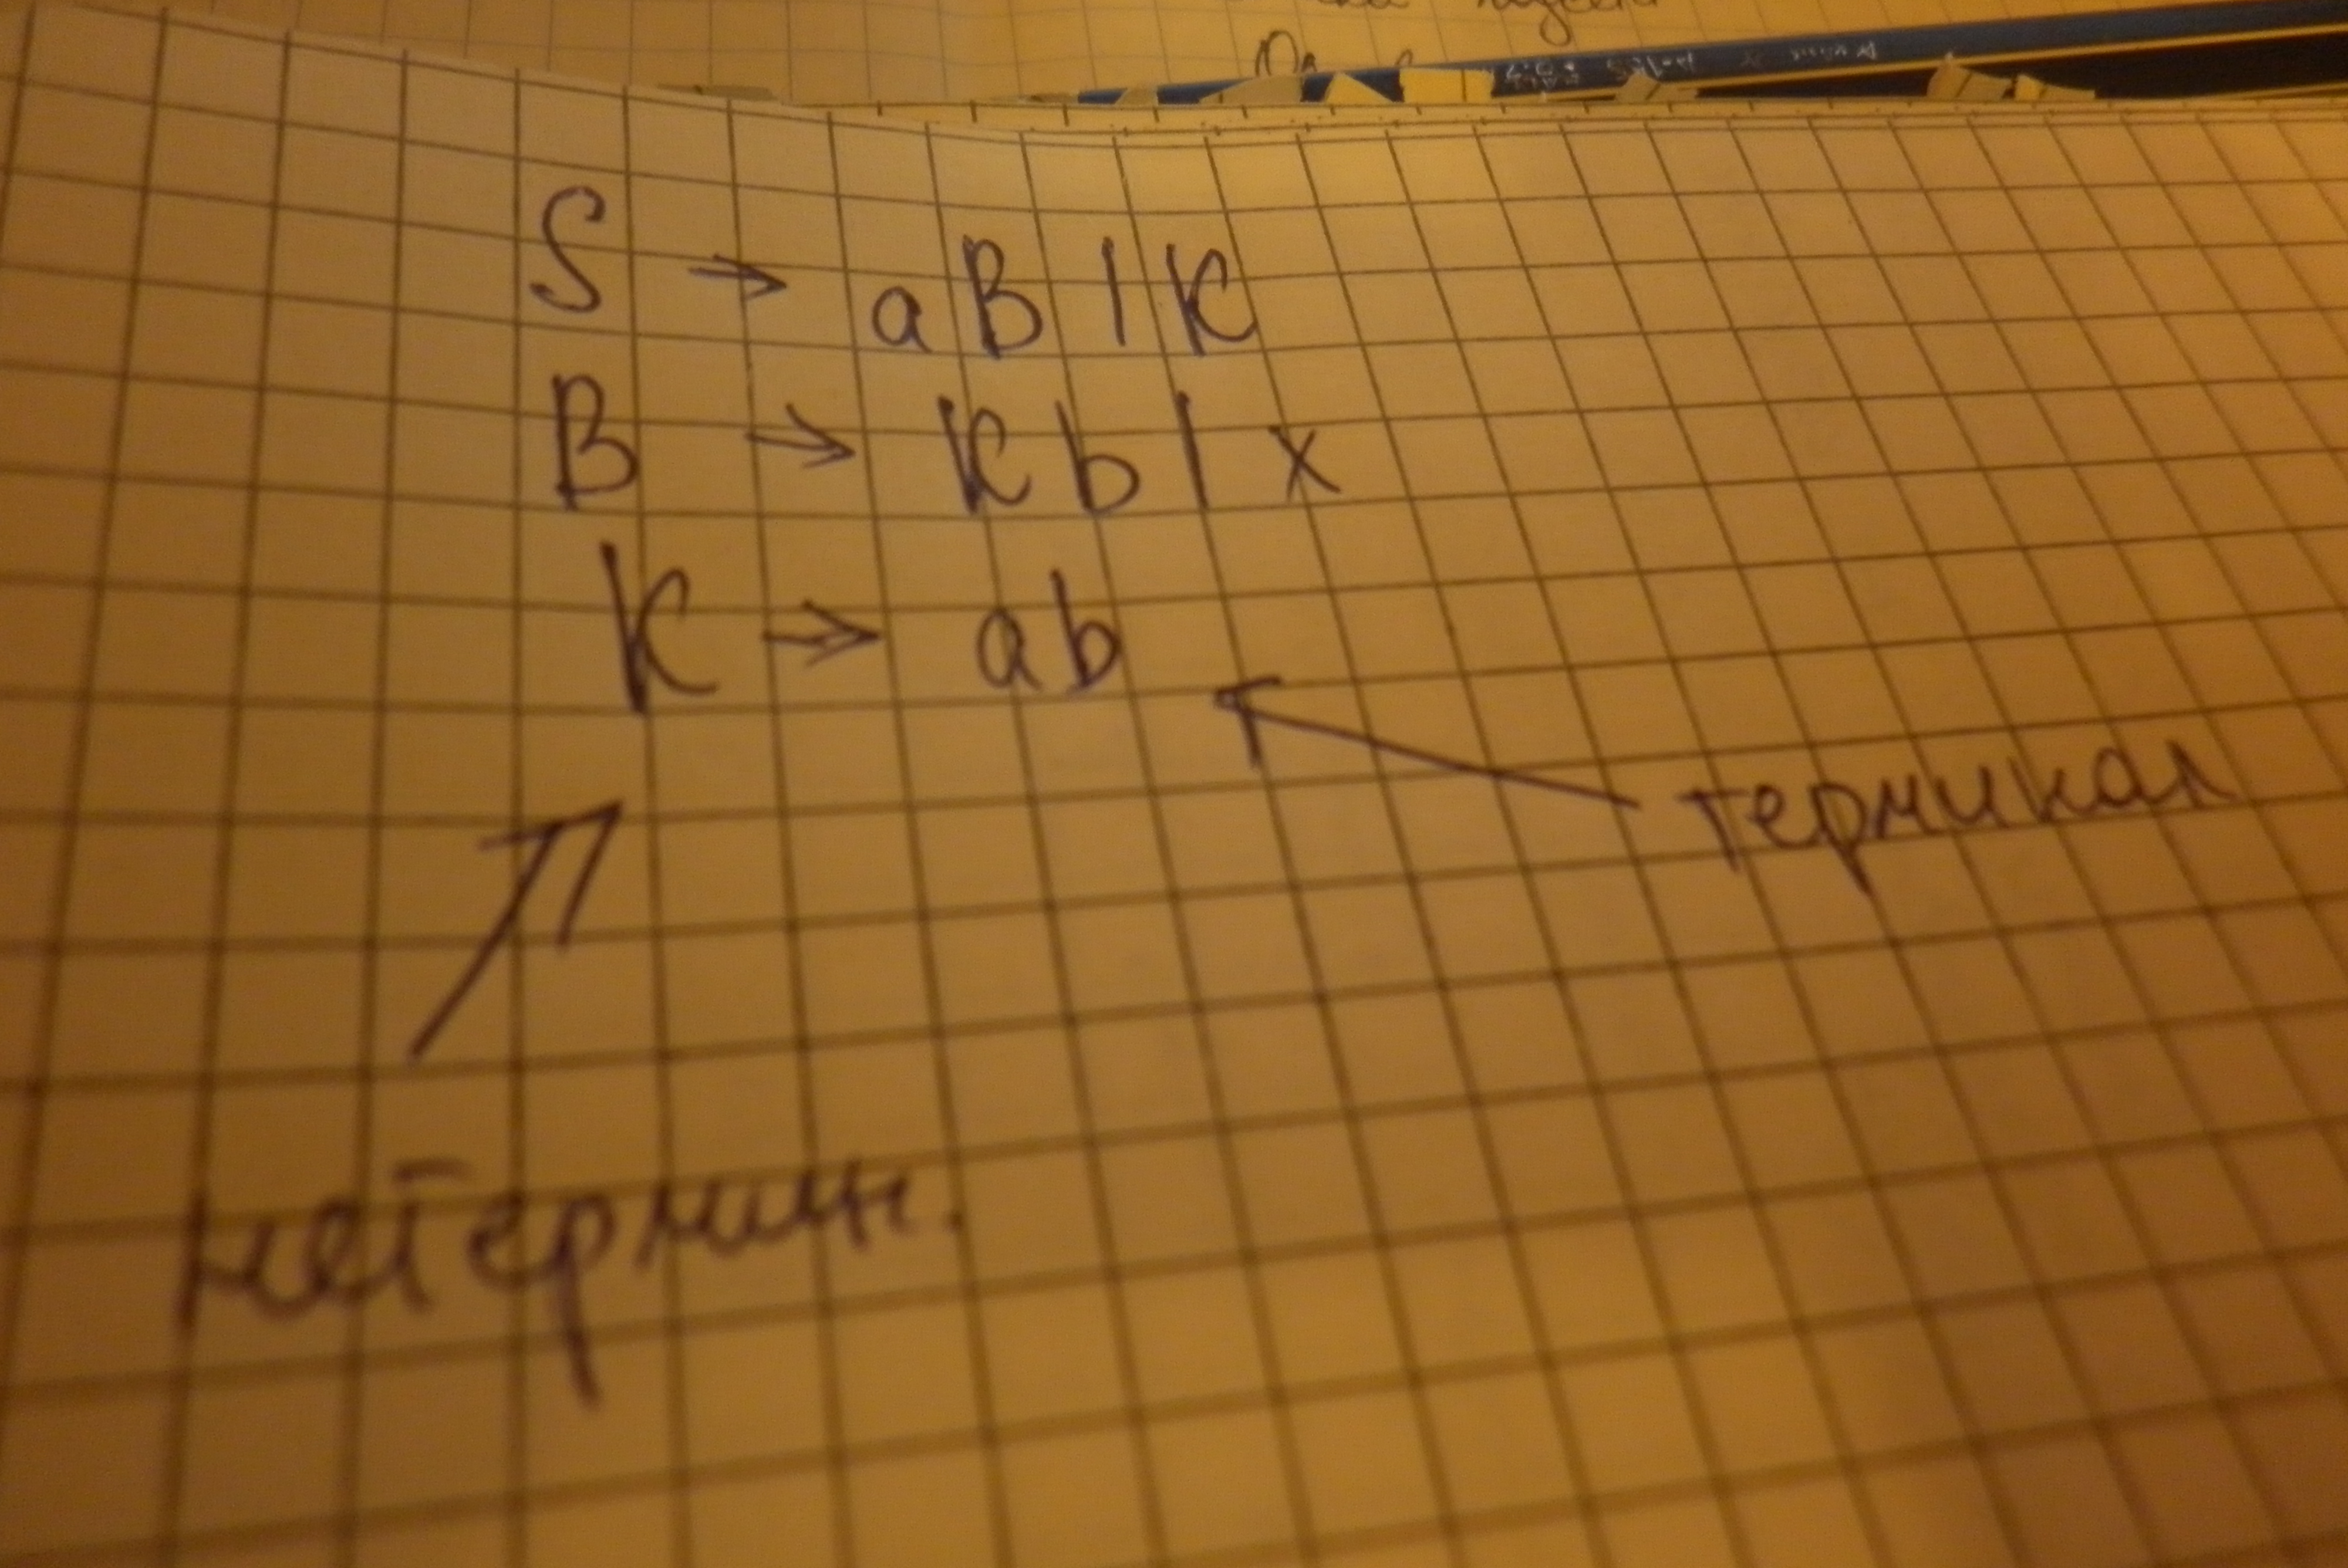 S → aB | K
B → Kb | x
K → ab
терминал
нетермин.